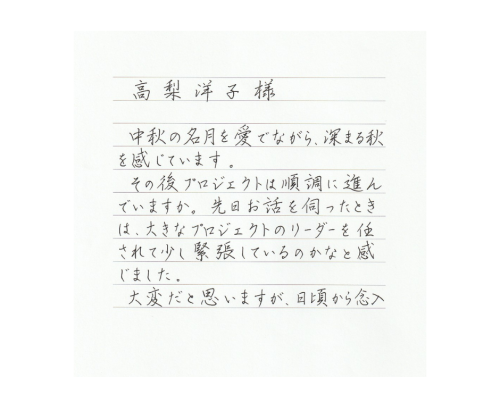 高梨洋子様
中秋の名月を愛でながら、深まる秋
を感じています。
その後プロジェクトは順調に進ん
でいますか。先日お話を伺ったとき
は、大きなプロジェクトのリーダーを任
されて少し緊張しているのかなと感
じました。
大変だと思いますが、日頃から念入